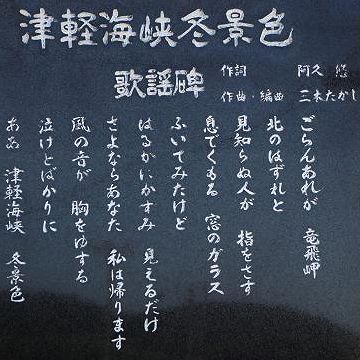 津軽海峡冬景色
歌謡碑
作詞 阿久 悠
作曲・編曲 三木たかし
ごらんあれが 竜飛岬
北のはずれと
見知らぬ人が 指をさす
息でくもる 窓のガラス
ふいてみたけど
はるかにかすみ 見えるだけ
さよならあなた 私は帰ります
風の音が 胸をゆする
泣けとばかりに
ああ 津軽海峡 冬景色